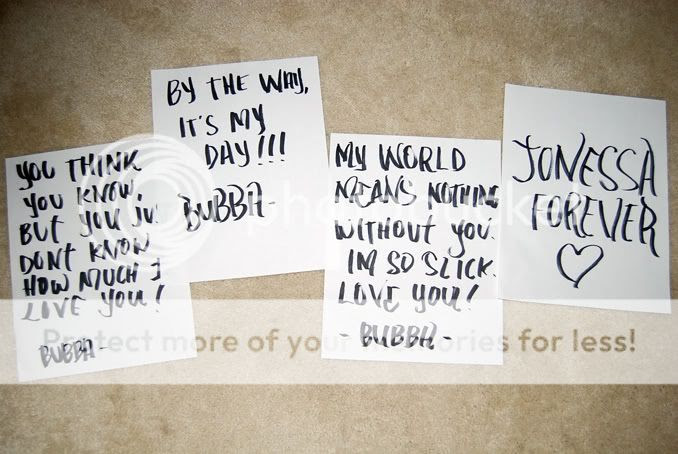 YOU THINK
YOU KNOW
BUT YOU JU
DONT KNOW
HOW MUCH I
LOVE YOU!
BUBBA-
BY THE WAY,
IT'S MY
DAY!!!
BUBBA-
MY WORLD
MEANS NOTHING
WITHOUT YOU.
IM SO SLICK.
LOVE YOU!
- BUBBA -
JONESSA
FOREVER
photobucket
Protect more of your memories for less!